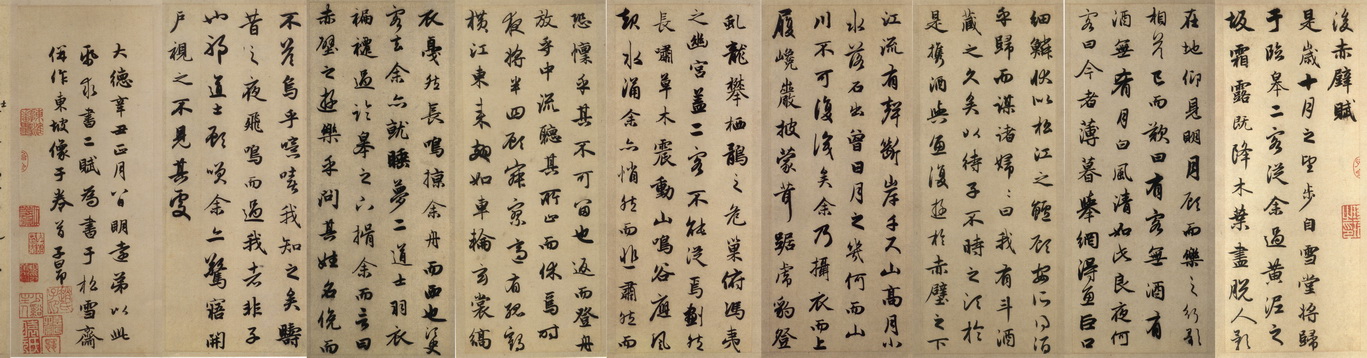 後赤壁賦
是歲十月之望步自雪堂將歸
于臨皋二客從余過黃泥之
坂霜露既降木葉盡脫人影
在地仰見明月顧而樂之行歌
相答已而歎曰有客無酒有
酒無肴月白風清如此良夜何
客曰今者薄暮舉網得魚巨口
細鱗狀似松江之鱸顧安所得酒
乎歸而謀諸婦〻曰我有斗酒
藏之久矣以待子不時之須於
是攜酒與魚復遊於赤壁之下
江流有聲斷岸千尺山高月小
水落石出曾日月之幾何而山
川不可復識矣余乃攝衣而上
履巉巖披蒙茸踞虎豹登
虬龍攀栖鶻之危巢俯馮夷
之幽宮蓋二客不能從焉劃然
長嘯草木震動山鳴谷應風
起水涌余亦悄然而悲肅然而
恐凜乎其不可留也返而登舟
放乎中流聽其所止而休焉時
夜將半四顧寂寥適有孤鶴
橫江東來翅如車輪玄裳縞
衣戛然長鳴掠余舟而西也須
客去余亦就睡夢二道士羽衣
褊褼過臨皋之下揖余而言曰
赤壁之遊樂乎問其姓名俛而
不答烏乎噫嘻我知之矣疇
昔之夜飛鳴而過我者非子
也邪道士顧笑余亦驚寤開
戶視之不見其處
大德辛丑正月八日明遠弟以此
紙求書二賦為書于松雪齋
併作東坡像于卷首子昂